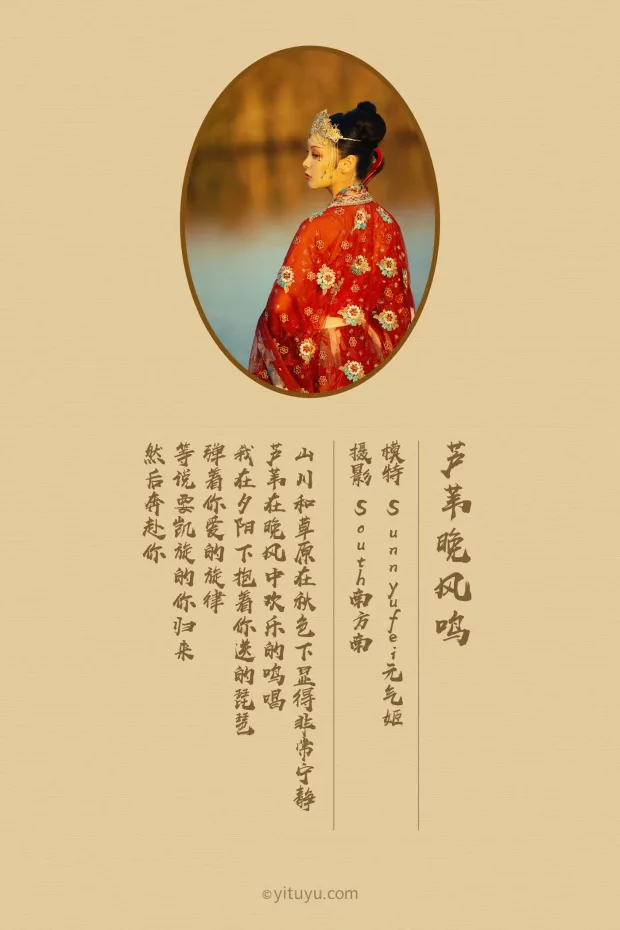 芦苇晚风鸣
模特 Sunnyufei元气姬
摄影 South南方南
山川和草原在秋色下显得非常宁静
芦苇在晚风中欢乐的鸣唱
我在夕阳下抱着你送的琵琶
弹着你爱的旋律
等说要凯旋的你归来
然后奔赴你
©yituyu.com